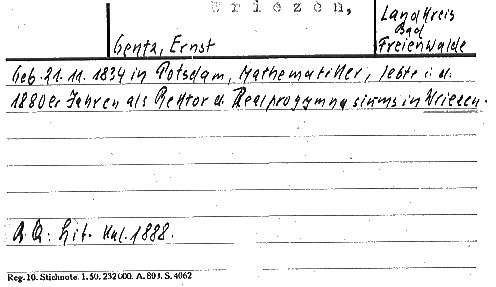 Wriezen,
Landkreis
Bad
Freienwalde
Gentz, Ernst
Geb. 21. 11. 1834 in Potsdam, Mathematiker, lebte i. d.
1880er Jahren als Rektor d. Realprogymnasiums in Wriezen.
A. Q: Lit. Kal. 1888.
Reg. 10. Stichnote. 1. 50. 232000. A. 803. S. 4062